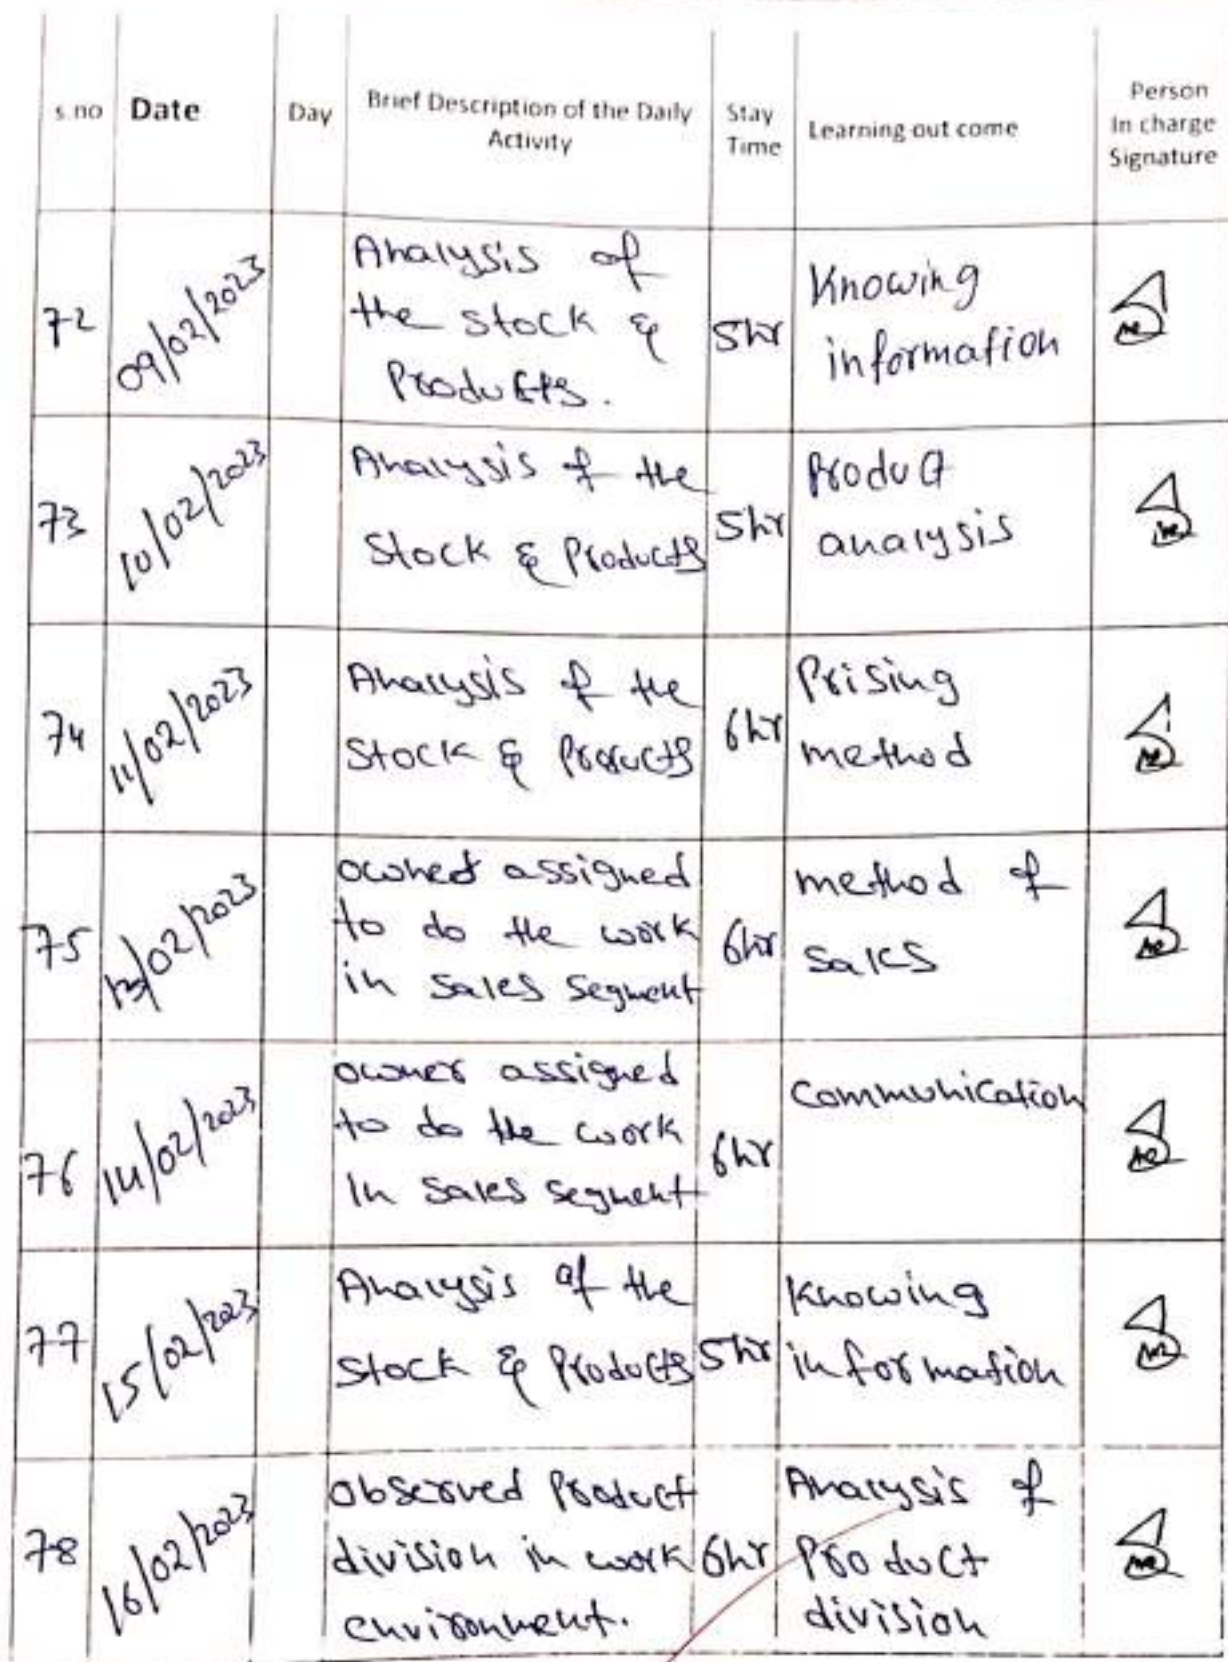 s.no Date Day Brief Description of the Daily Activity Stay Time Learning out come Person In charge Signature
72 09/02/2023 Analysis of the stock & Products. 5hr Knowing information
73 10/02/2023 Analysis of the Stock & Products 5hr Product analysis
74 11/02/2023 Analysis of the Stock & Products 6hr Prising method
75 13/02/2023 owned assigned to do the work in sales segment 6hr method of sales
76 14/02/2023 owner assigned to do the work In sales segment 6hr Communication
77 15/02/2023 Analysis of the Stock & Products 5hr Knowing information
78 16/02/2023 observed Product division in work environment. 6hr Analysis of Product division